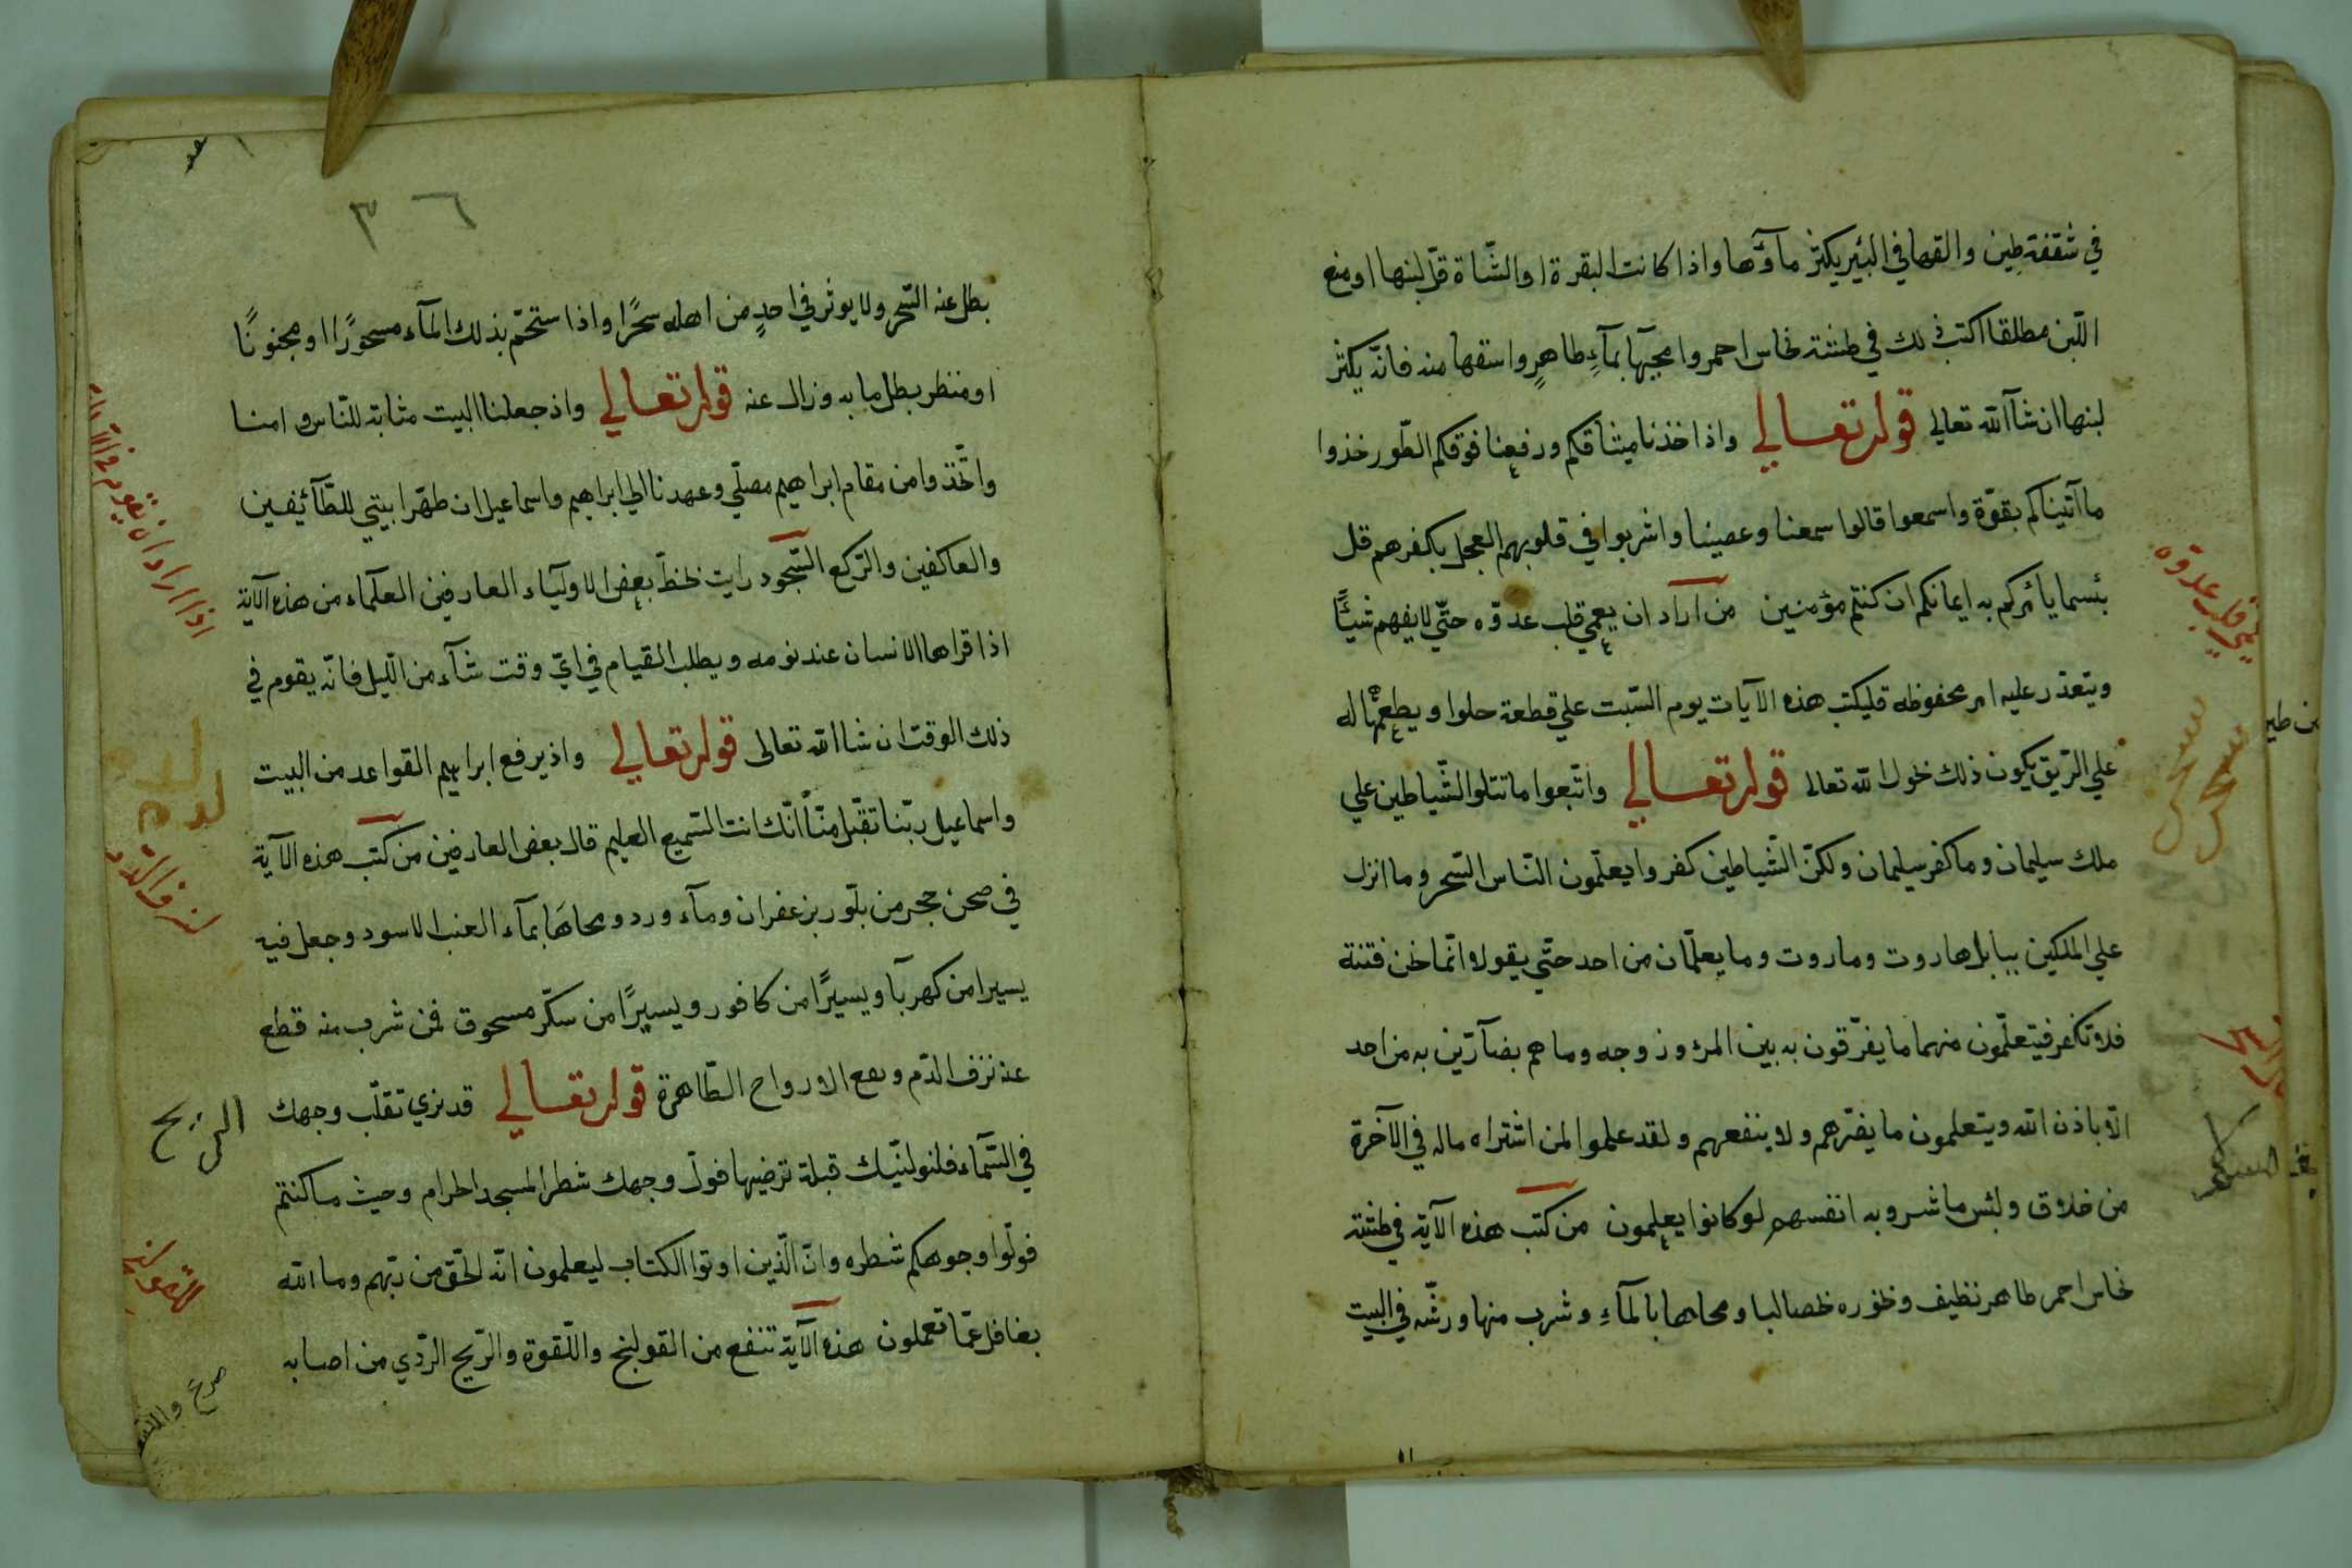 في شقفة طين والقها في البئير يكثر مآؤها واذا كانت البقرة او الشّاة قلّ لبنها او منع
اللّبن مطلقا اكتب ذلك في طشتة نحاس احمر وامحيها بمآءٍ طاهرٍ واسقها منه فانّه يكثر
لبنها ان شآ الله تعالى قوله تعالي واذ اخذنا ميثاقكم ورفعنا فوقكم الطّور خذوا
ما آتيناكم بقوّة واسمعوا قالوا سمعنا وعصينا واشربوا في قلوبهم العجل بكفرهم قل
بئسما يائمركم به ايمانكم ان كنتم مؤمنين من اراد ان يعمي قلب عدوّه حتّي لا يفهم شيئًا
ويتعذر عليه امر محفوظه فليكتب هذه الآيات يوم السّبت علي قطعة حلوا ويطعمها له
علي الرّيق يكون ذلك الله تعالى قوله تعالي واتّبعوا ما تتلو الشّياطين علي
ملك سليمان وما كفر سليمان ولكنّ الشّياطين كفروا يعلّمون النّاس السّحر وما انزل
علي الملكين ببابل هاروت وماروت وما يعلّمان من احد حتّي يقولا انّما نحن فتنة
فلا تكفر فيتعلّمون منهما ما يفرّقون به بين المرء وزوجه وما هم بضآرّين به من احد
الاّ باذن الله ويتعلمون ما يضرّهم ولا ينفعهم ولقد علموا لمن اشتراه ماله في الآخرة
من خلاق ولبئس ما شروبه انفسهم لو كانوا يعلمون من كتب هذه الآية في طشتة
نحاس احمر طاهر نظيف وبخوره ومحاها بالمآءِ وشرب منها ورشّه في البيت
قلب عدوه
ين طين
٣٦
بطل عنه السّحر ولا يوثر في احدٍ من اهله سحرًا واذا ستحمّ بذلك المآء مسحورًا او مجنونًا
او منظر بطل ما به وزال عنه قوله تعالي واذ جعلنا البيت مثابة للنّاس وامنا
واتّخذوا من مقام ابراهيم مصلّي وعهدنا الي ابراهيم واسماعيل ان طهّرا بيتي للطّآئفين
والعاكفين والرّكع السّجود رايت بخطّ بعض الاوليآء العارفين العلمآء من هذه الآية
اذا قراها الانسان عند نومه ويطلب القيام في ايّ وقت شآء من اللّيل فانّه يقوم في
ذلك الوقت ان شا الله تعالى قوله تعالي واذ يرفع ابراهيم القواعد من البيت
واسماعيل ربّنا تقبّل منّا انّك انت السّميع العليم قال بعض العارفين من كتب هذه الآية
في صحن حجر من بلّور بزعفران ومآء ورد ومحاها بمآء العنب الاسود وجعل فيه
يسيرا من كهربآ ويسيرًا من كافور ويسيرًا من سكّر مسحوق فمن شرب منه قطع
عنه نزف الدّم ومع الارواح الطّاهرة قوله تعالي قد نري تقلّب وجهك
في السّمآء فلنولنّيك قبلة ترضيها فولّ وجهك شطر المسجد الحرام وحيث ما كنتم
فولّوا وجوهكم شطره وانّ الّذين اوتوا الكتاب ليعلمون انّه الحّق من ربّهم وما الله
بغافل عمّا تعملون هذه الآية تنفع من القولنج واللّقوة والرّيح الرّدي من اصابه
اذا اراد ان يقوم
لنزف الدم
الريح